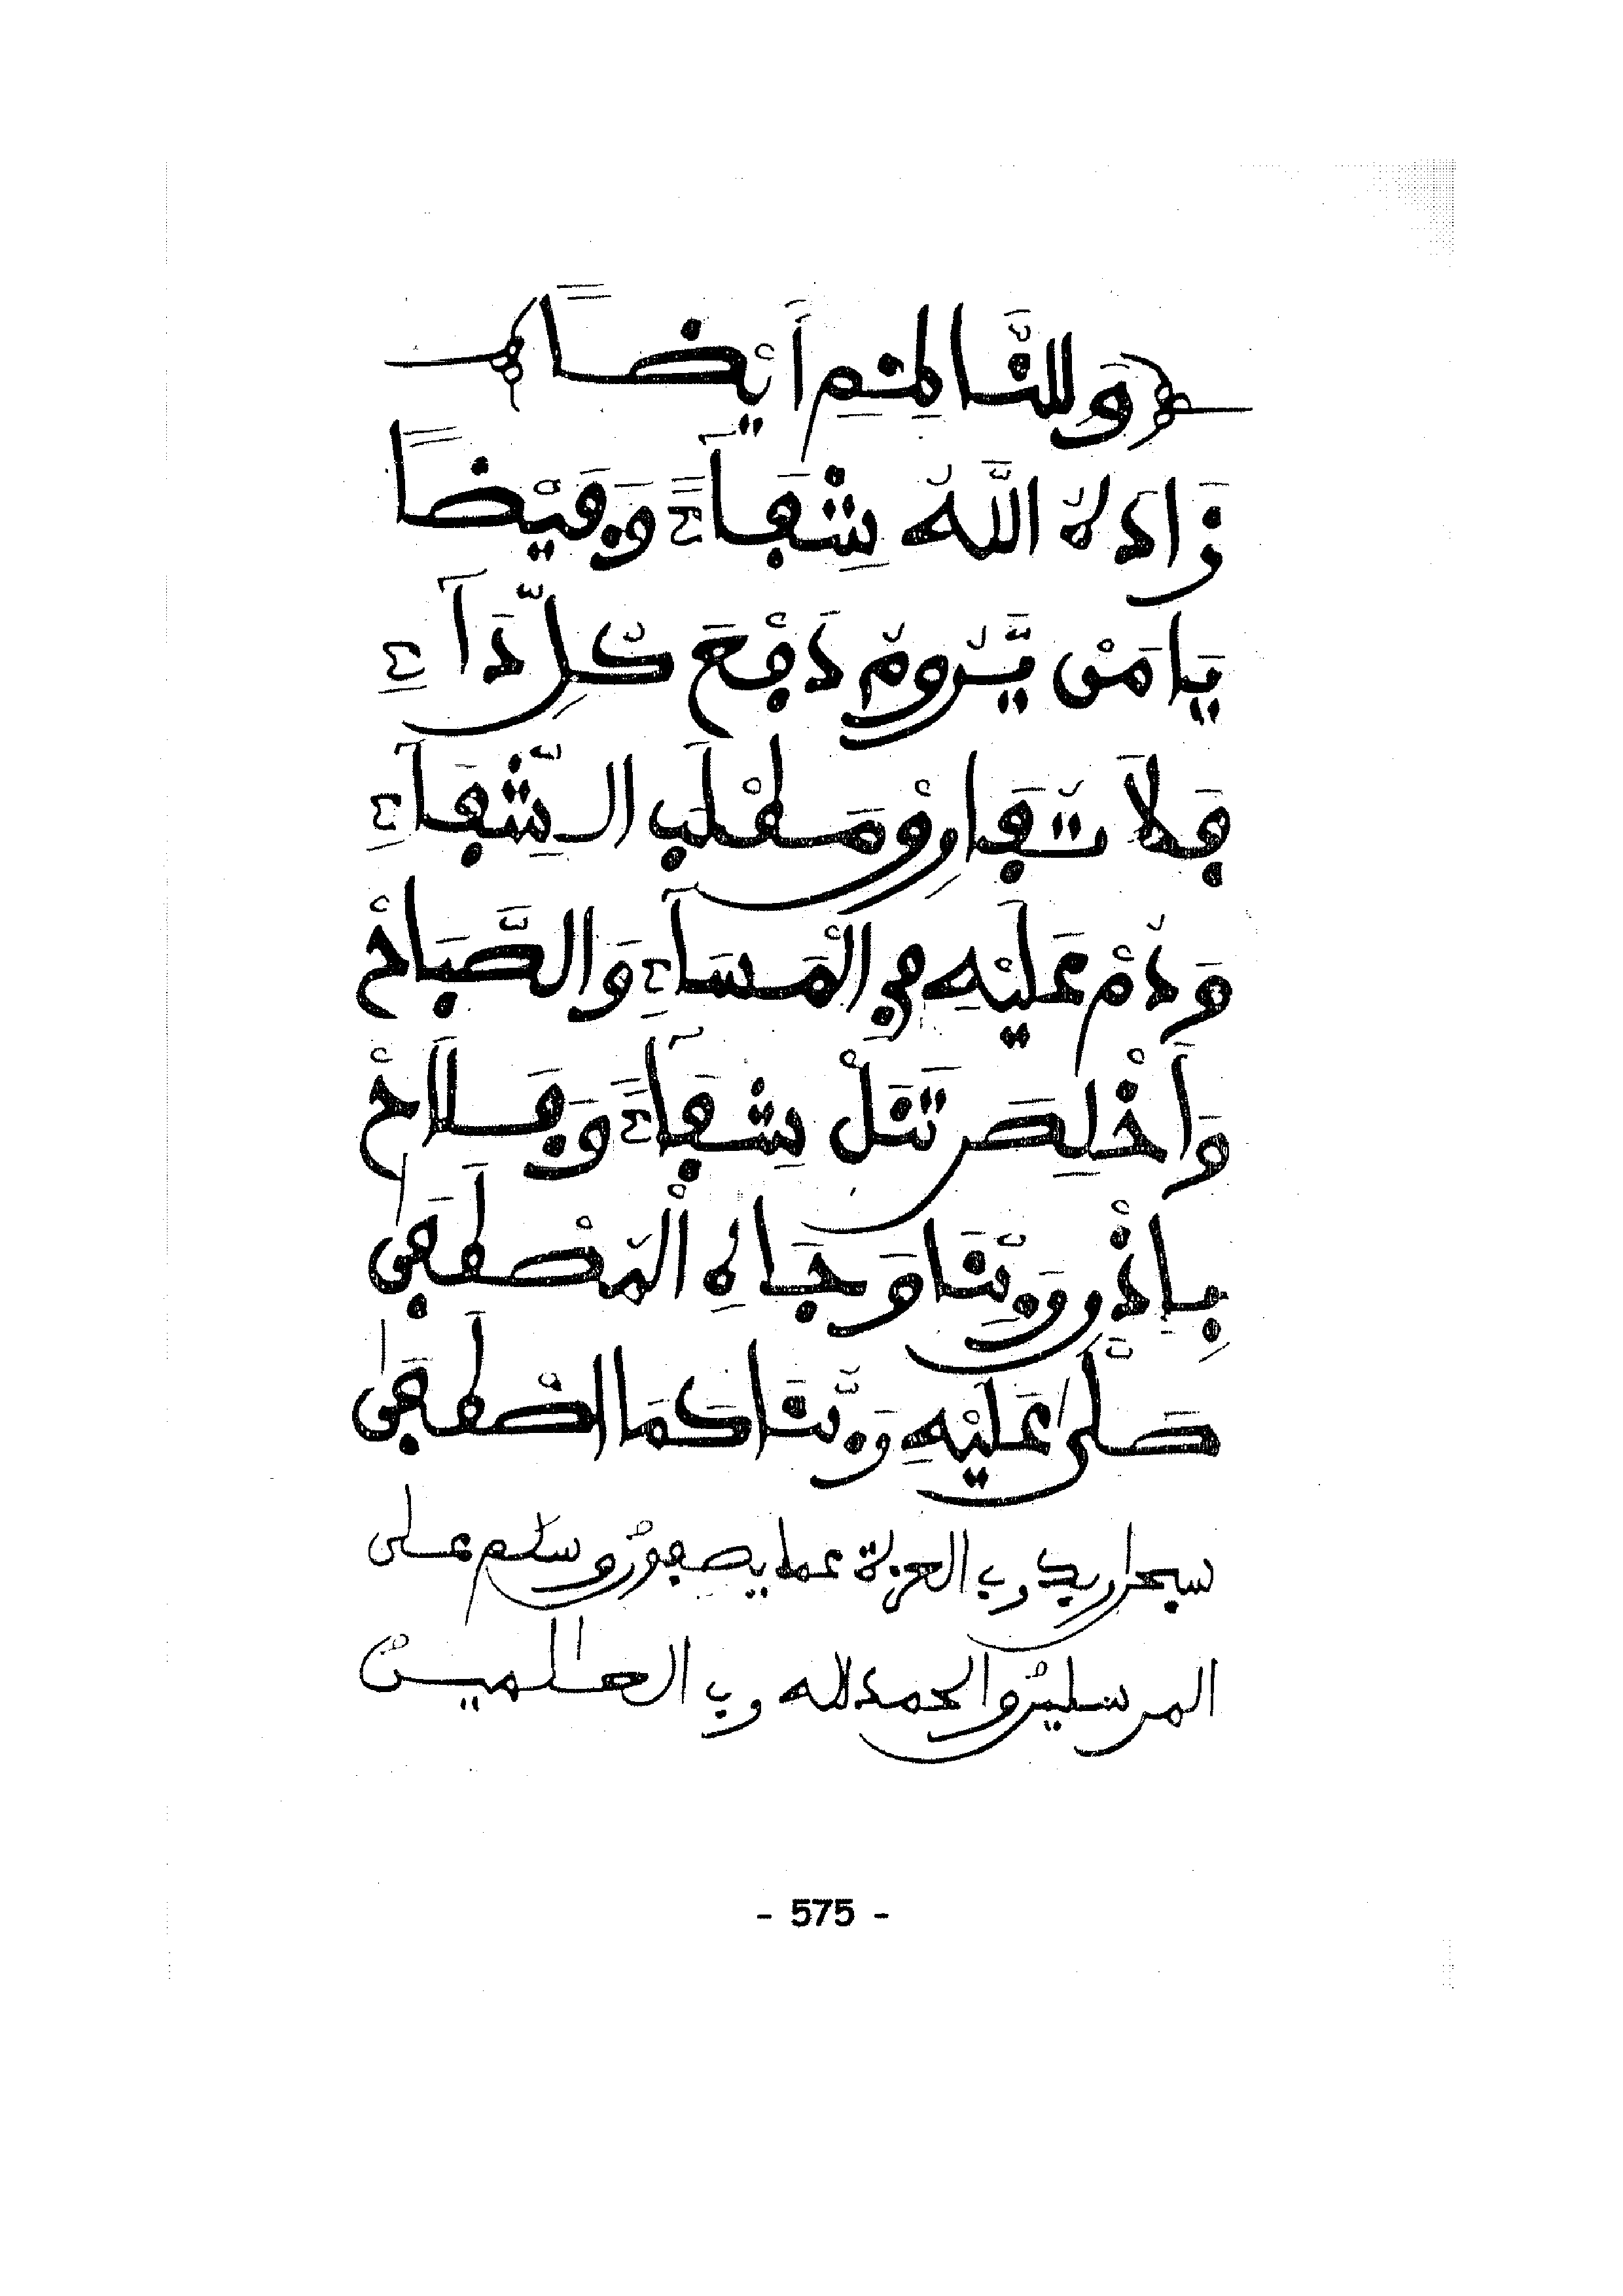 وَلِلنَّاظِمِ أَيْضًا
زَادَهُ اللَّهُ شِفَاءً وَفَيْضًا
يَا مَنْ يَّرُومُ دَفْعَ كُلِّ دَآءِ
فَلَا تُفَارِقُ مَطْلَبَ الشِّفَآءِ
وَدُمْ عَلَيْهِ فِي الْمَسَآءِ وَالصَّبَاحْ
وَأَخْلِصَنْ تَنَلْ شِفَآءً وَفَلَاحْ
بِإِذْنِ رَبِّنَا وَجَاهِ الْمُصْطَفَى
صَلَّى عَلَيْهِ رَبُّنَا كَمَا اصْطَفَى
سبحان ربك رب العزة عما يصفون وسلم على
المرسلين والحمد لله رب العلمين
- 575 -